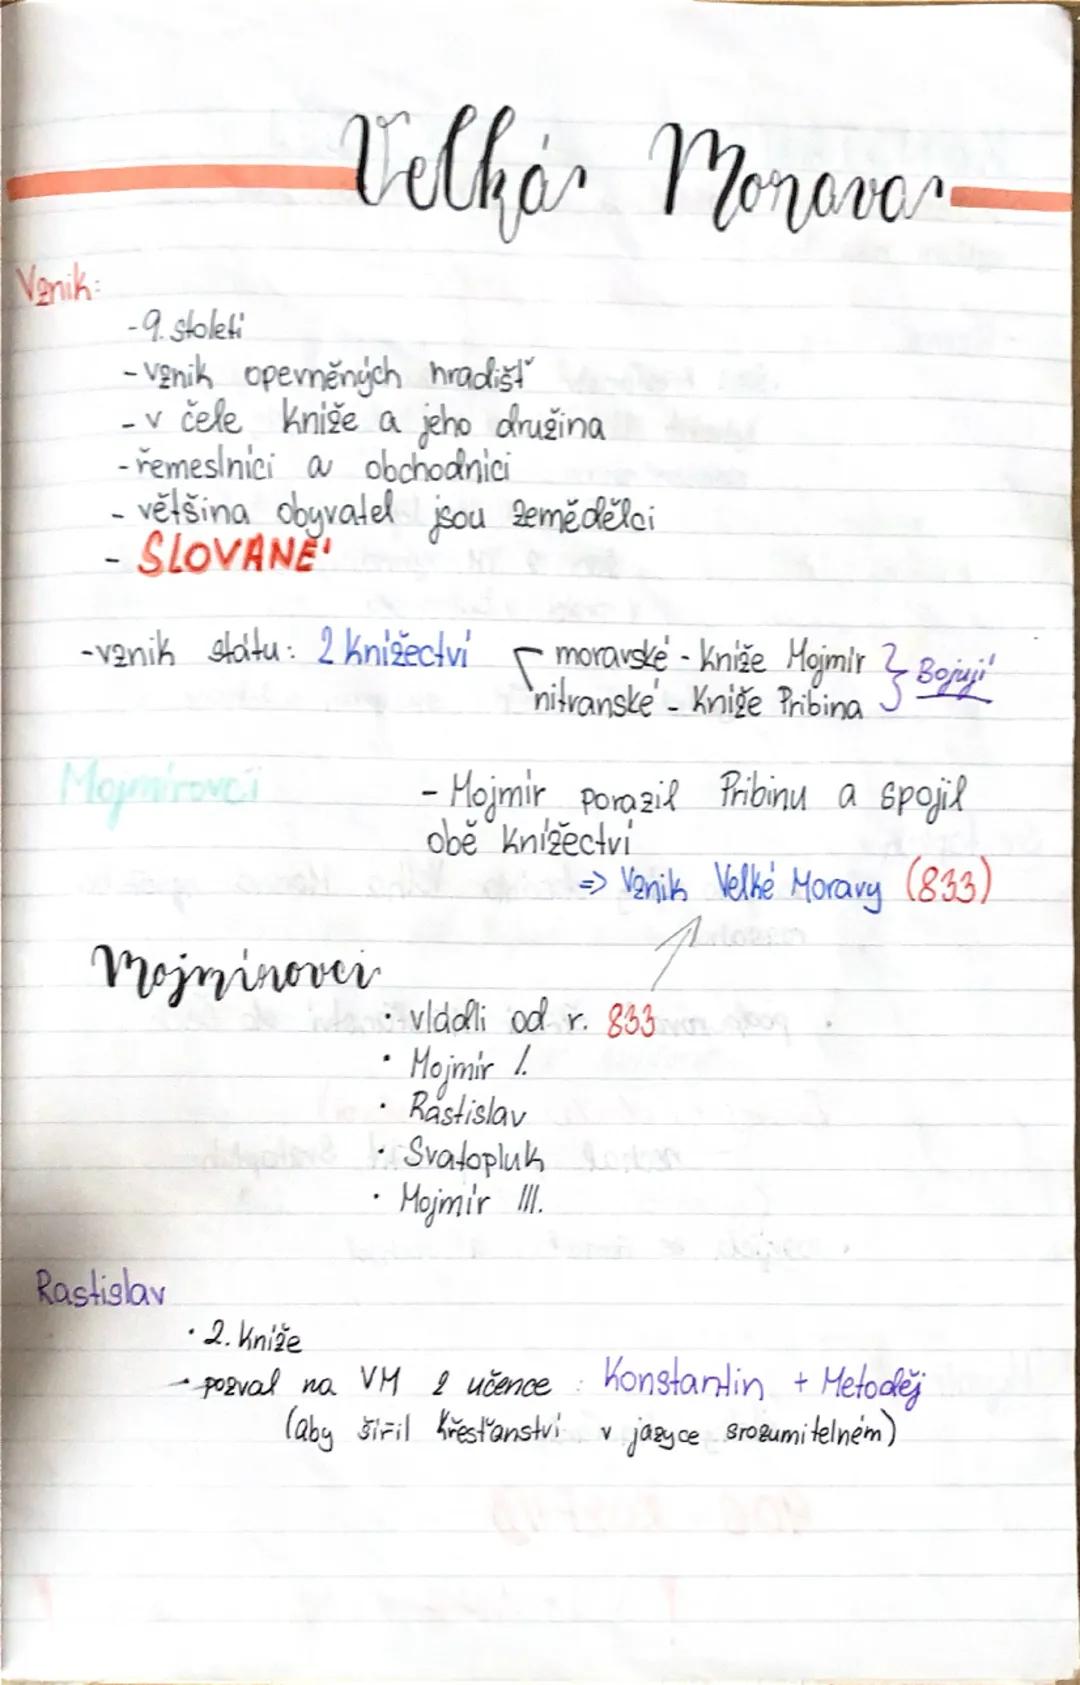 Velká Morava
Vznik:
-9. století
- vznik opevněných hradišť
- v čele kníže a jeho družina
- řemeslníci a obchodníci
- většina obyvatel jsou zemědělci
- SLOVANÉ
-vznik státu: 2 knížectví moravské - kníže Mojmír } Bojují
nitranské - kníže Pribina
Mojmírovci
- Mojmír porazil Pribinu a spojil
obě knížectví
=> Vznik Velké Moravy (833)
Mojmírovci
· vládli od r. 833
· Mojmír I.
· Rastislav
· Svatopluk
· Mojmír III.
Rastislav
· 2. kníže
- pozval na VM 2 učence : Konstantin + Metoděj
(aby šířil křesťanství v jazyce srozumitelném)